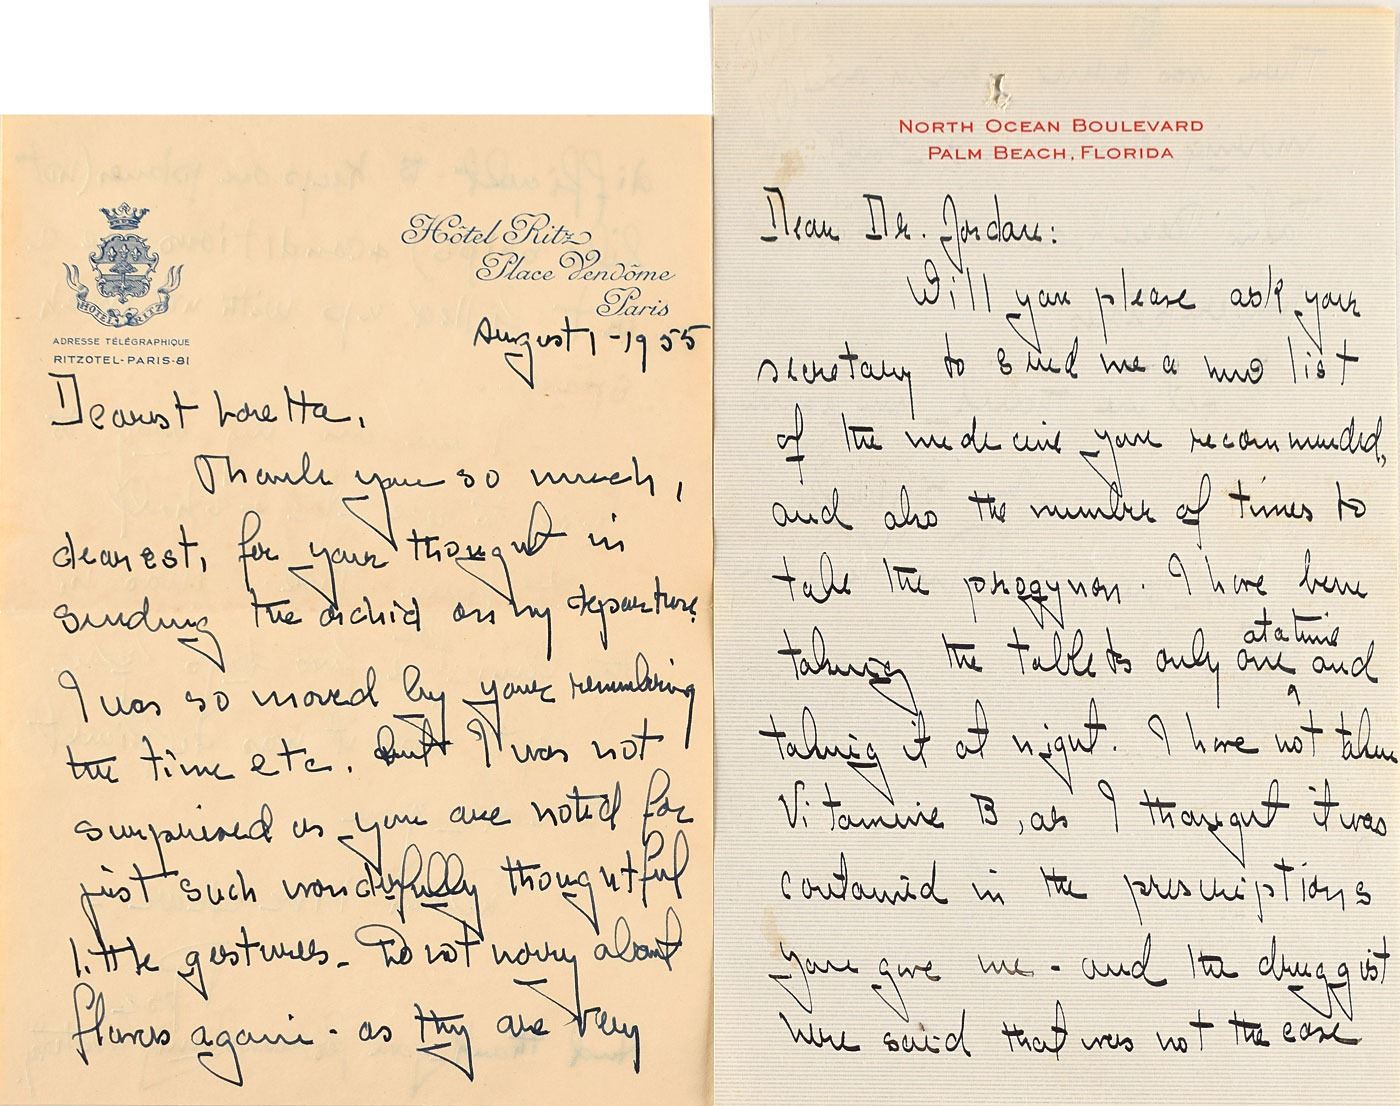 HOTEL RITZ
ADRESSE TÉLÉGRAPHIQUE
RITZOTEL-PARIS-81
Hôtel Ritz
Place Vendôme
Paris
August 1-1955
Dearest Loretta,
Thank you so much,
dearest, for your thought in
sending the orchid on my departure.
I was so moved by your remembering
the time etc. But I was not
surprised as you are noted for
just such wonderfully thoughtful
little gestures - Do not worry about
flowers again - as they are very
NORTH OCEAN BOULEVARD
PALM BEACH, FLORIDA
Dear Dr. Jordan:
Will you please ask your
secretary to send me a new list
of the medicine you recommended,
and also the number of times to
take the progynon. I have been
taking the tablets only one at a time and
taking it at night. I have not taken
Vitamine B, as I thought it was
contained in the prescriptions
you give me - and the druggist
here said that was not the case